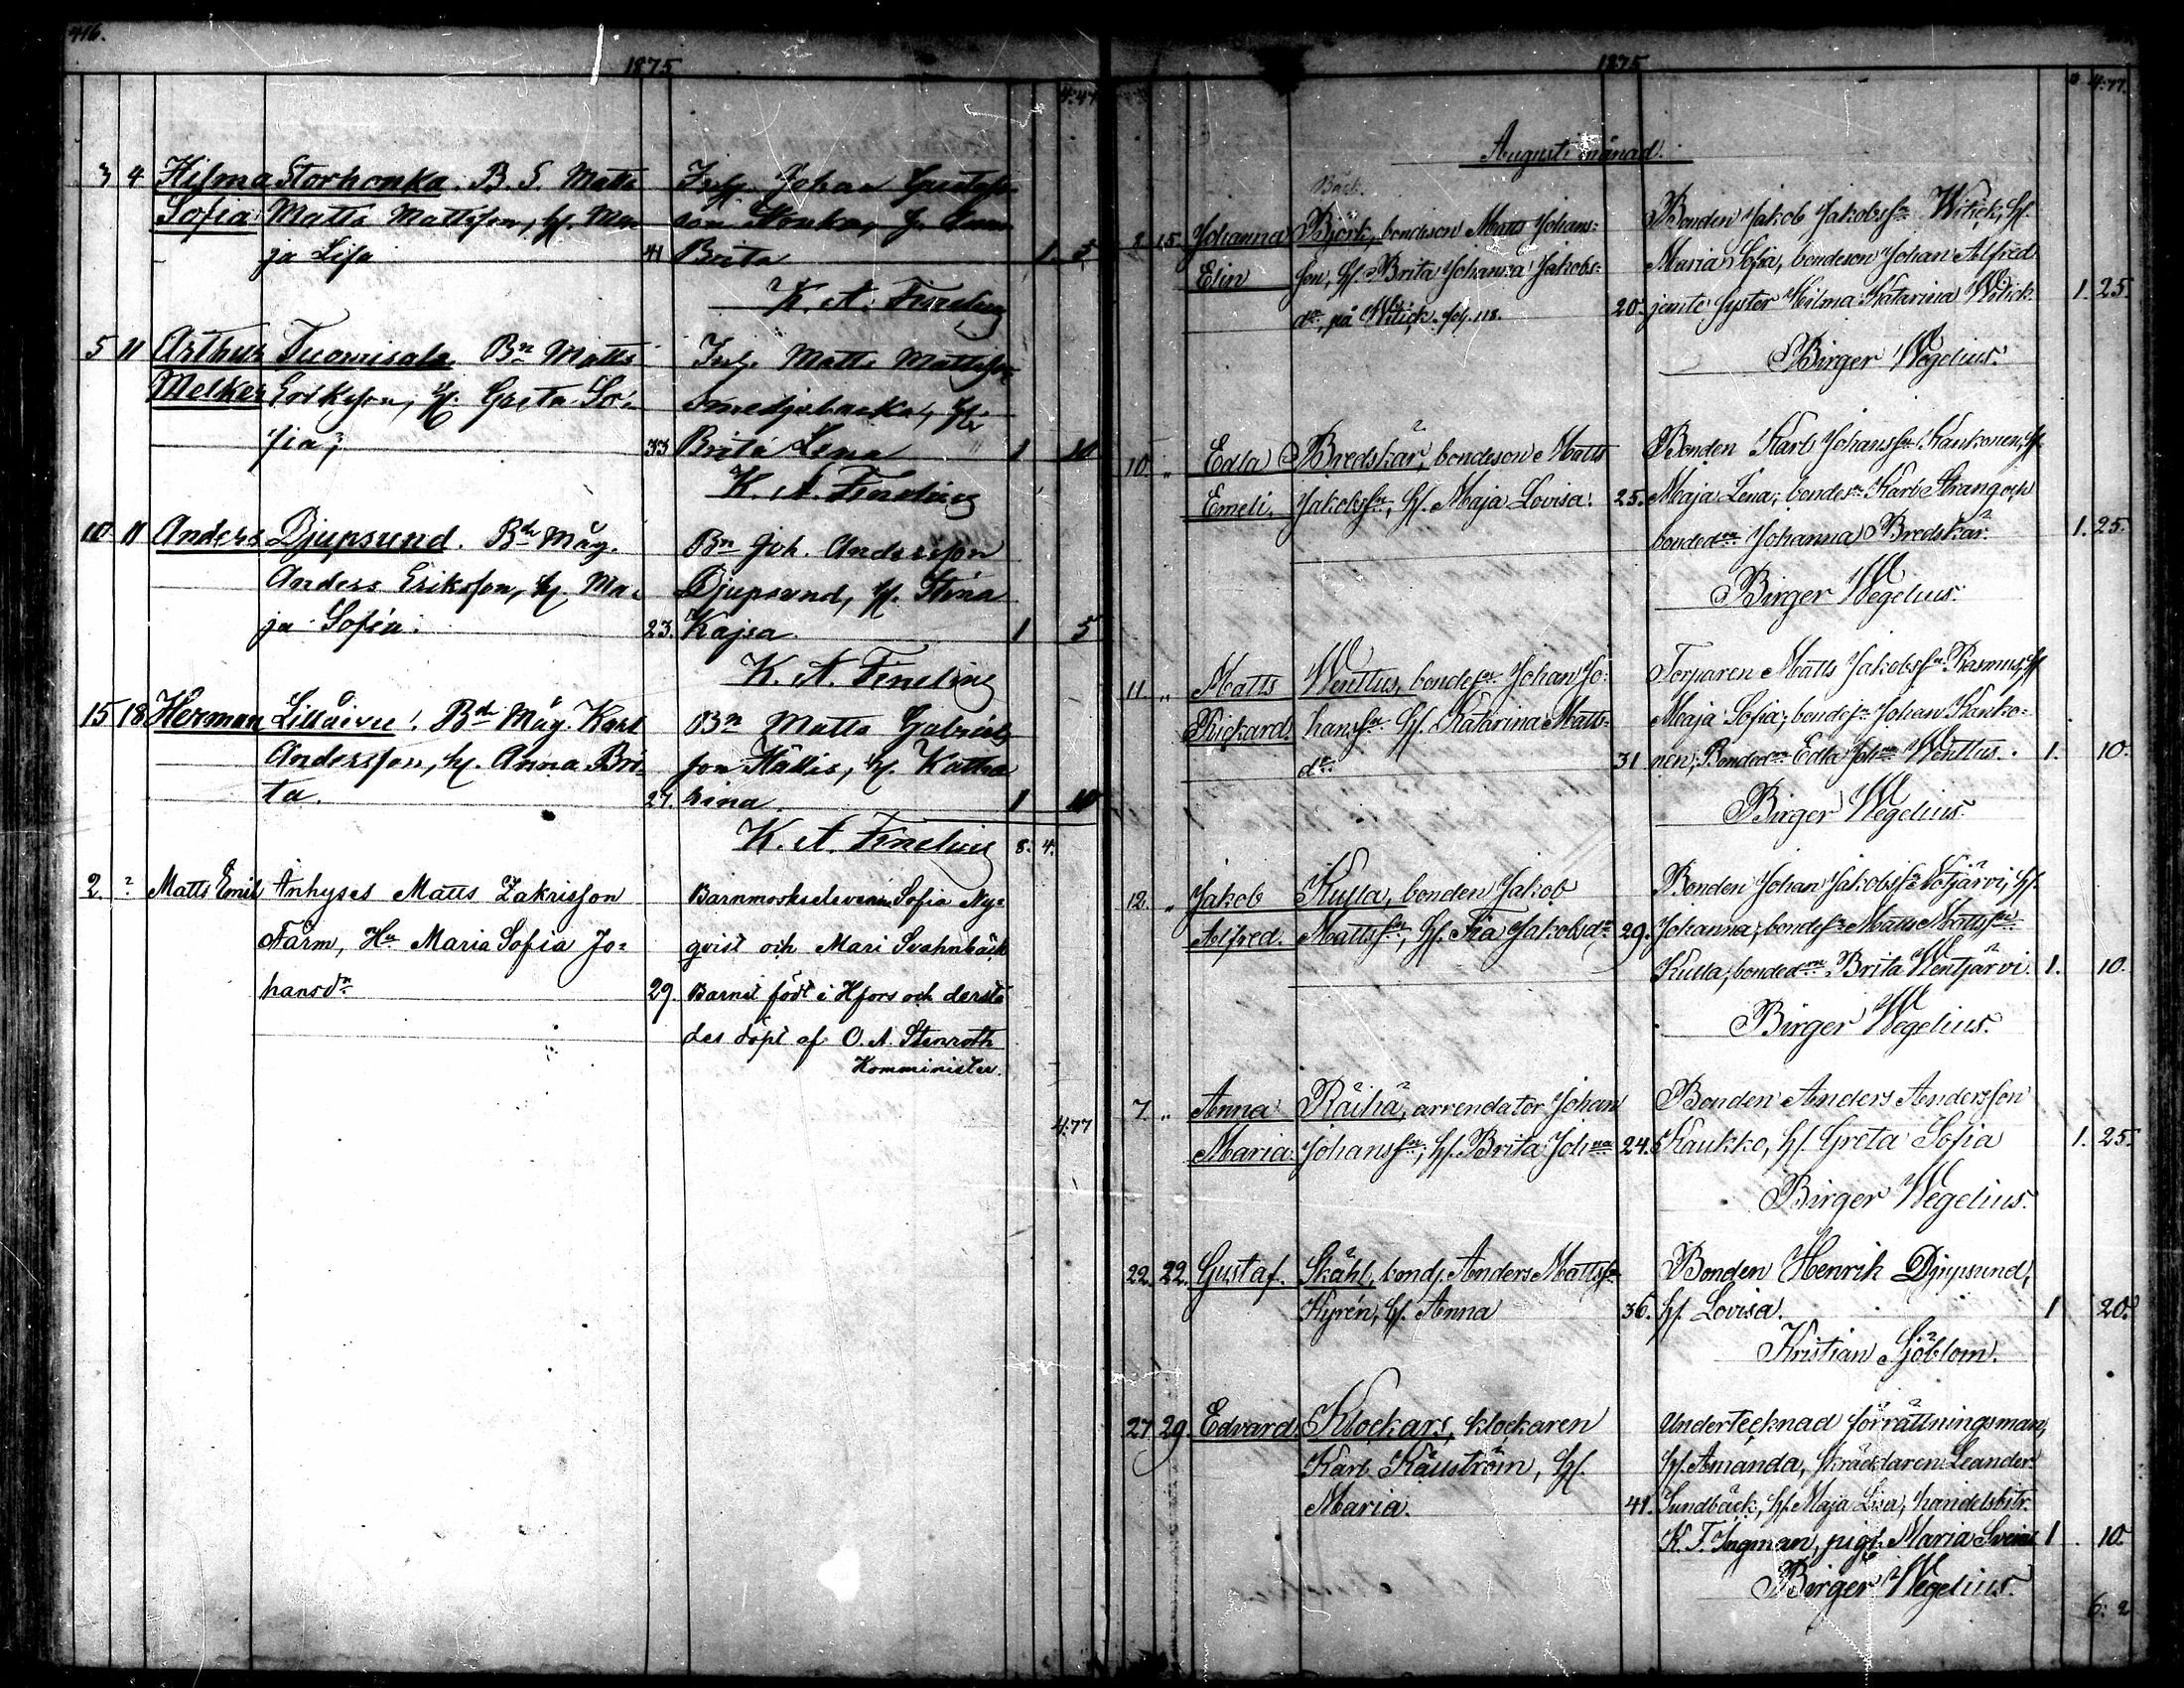 416.
1875
4:47
3 4 Hilma Storhonka. B. S. Matts
Sofia Matts Mattsson, hf. Ma
ja Lisa 41
Johan Gustafs
son Honka, 
Brita 1. 5
K. A. Fineling
5 11 Arthur Tuomisala Bn Matts
Melker Eriksson, hf. Greta So-
fia; 33
Inh. Matts Mattsson
Smedjebacka, hf.
Brita Lena 1 10
K. A. Fineling
10 11 Anders Djupsund. Bde Måg.
Anders Eriksson, hf. Ma-
ja Sofia. 23.
Bn Joh. Andersson
Djupsund, hf. Stina
Kajsa. 1 5
K. A. Fineling
15 18 Herman Lillåivu. Bde Måg. Karl
Andersson, hf. Anna Bri-
ta. 27.
Bn Matts Gabriels
son Källis, hf. Katha
rina. 1 10
K. A. Fineling 8. 4.
2. ? Matts Emil Inhyses Matts Zakrisson
Färm, Hu Maria Sofia Jo-
hansdr 29.
Barnmorskeleven Sofia Ny-
qvist och Mari Svahnbäck
Barnet födt i Hfors och dersta
des döpt af O. A. Stenroth
Komminister.
4:77
1875
4:77.
Augusti månad.
Bäck.
8. 15. Johanna Björk, bondeson Matts Johans-
Elin son, hf. Brita Johanna Jakobs-
dr, på Witick. fol. 118. 20.
Bonden Jakob Jakobssn Witick, hf.
Maria Sofia, bondeson Johan Alfred
jemte syster Hilma Katarina Witick. 1. 25
Birger Wegelius.
10. " Edla Bredskär, bondeson Matts
Emeli. Jakobssn, hf. Maja Lovisa. 25.
Bonden Karl Johanssn Kankonen, hf.
Maja Lena; bondesn Karl Strang och
bondedrn Johanna Bredskär. 1. 25.
Birger Wegelius.
11. " Matts Wenttus, bondesn Johan Jo-
Rickard. hanssn, hf. Katarina Matts-
dr. 31
Torparen Matts Jakobssn Rasmus, hf.
Maja Sofia; bondesn Johan Kanko-
nen; Bondedrn Edla Johna Wenttus. 1. 10.
Birger Wegelius.
12. " Jakob Kulla, bonden Jakob
Alfred. Mattssn, hf. Fia Jakobsdr 29.
Bonden Johan Jakobssn Notjärvi, hf.
Johanna; bondesn Matts Mattssn
Kulla; bondedrn Brita Wentjärvi. 1. 10.
Birger Wegelius.
7. " Anna Räihä, arrendator Johan
Maria. Johanssn, hf. Brita Johna 24.
Bonden Anders Andersson
Kaukko, hf. Greta Sofia 1. 25.
Birger Wegelius.
22. 22. Gustaf. Skåhl, bond. Anders Mattssn
Kyrén, hf. Anna 36.
Bonden Henrik Djupsund,
hf. Lovisa. 1 20.
Kristian Sjöblom.
27 29. Edvard. Klockars, klockaren
Karl Källström, hf.
Maria. 41.
Undertecknad förrättningsman,
hf. Amanda, skräddaren Leander
Sundbäck, hf. Maja Lisa, handelsbitr.
K. T. Ingman, pig. Maria 1. 10.
Birger Wegelius.
6. 2